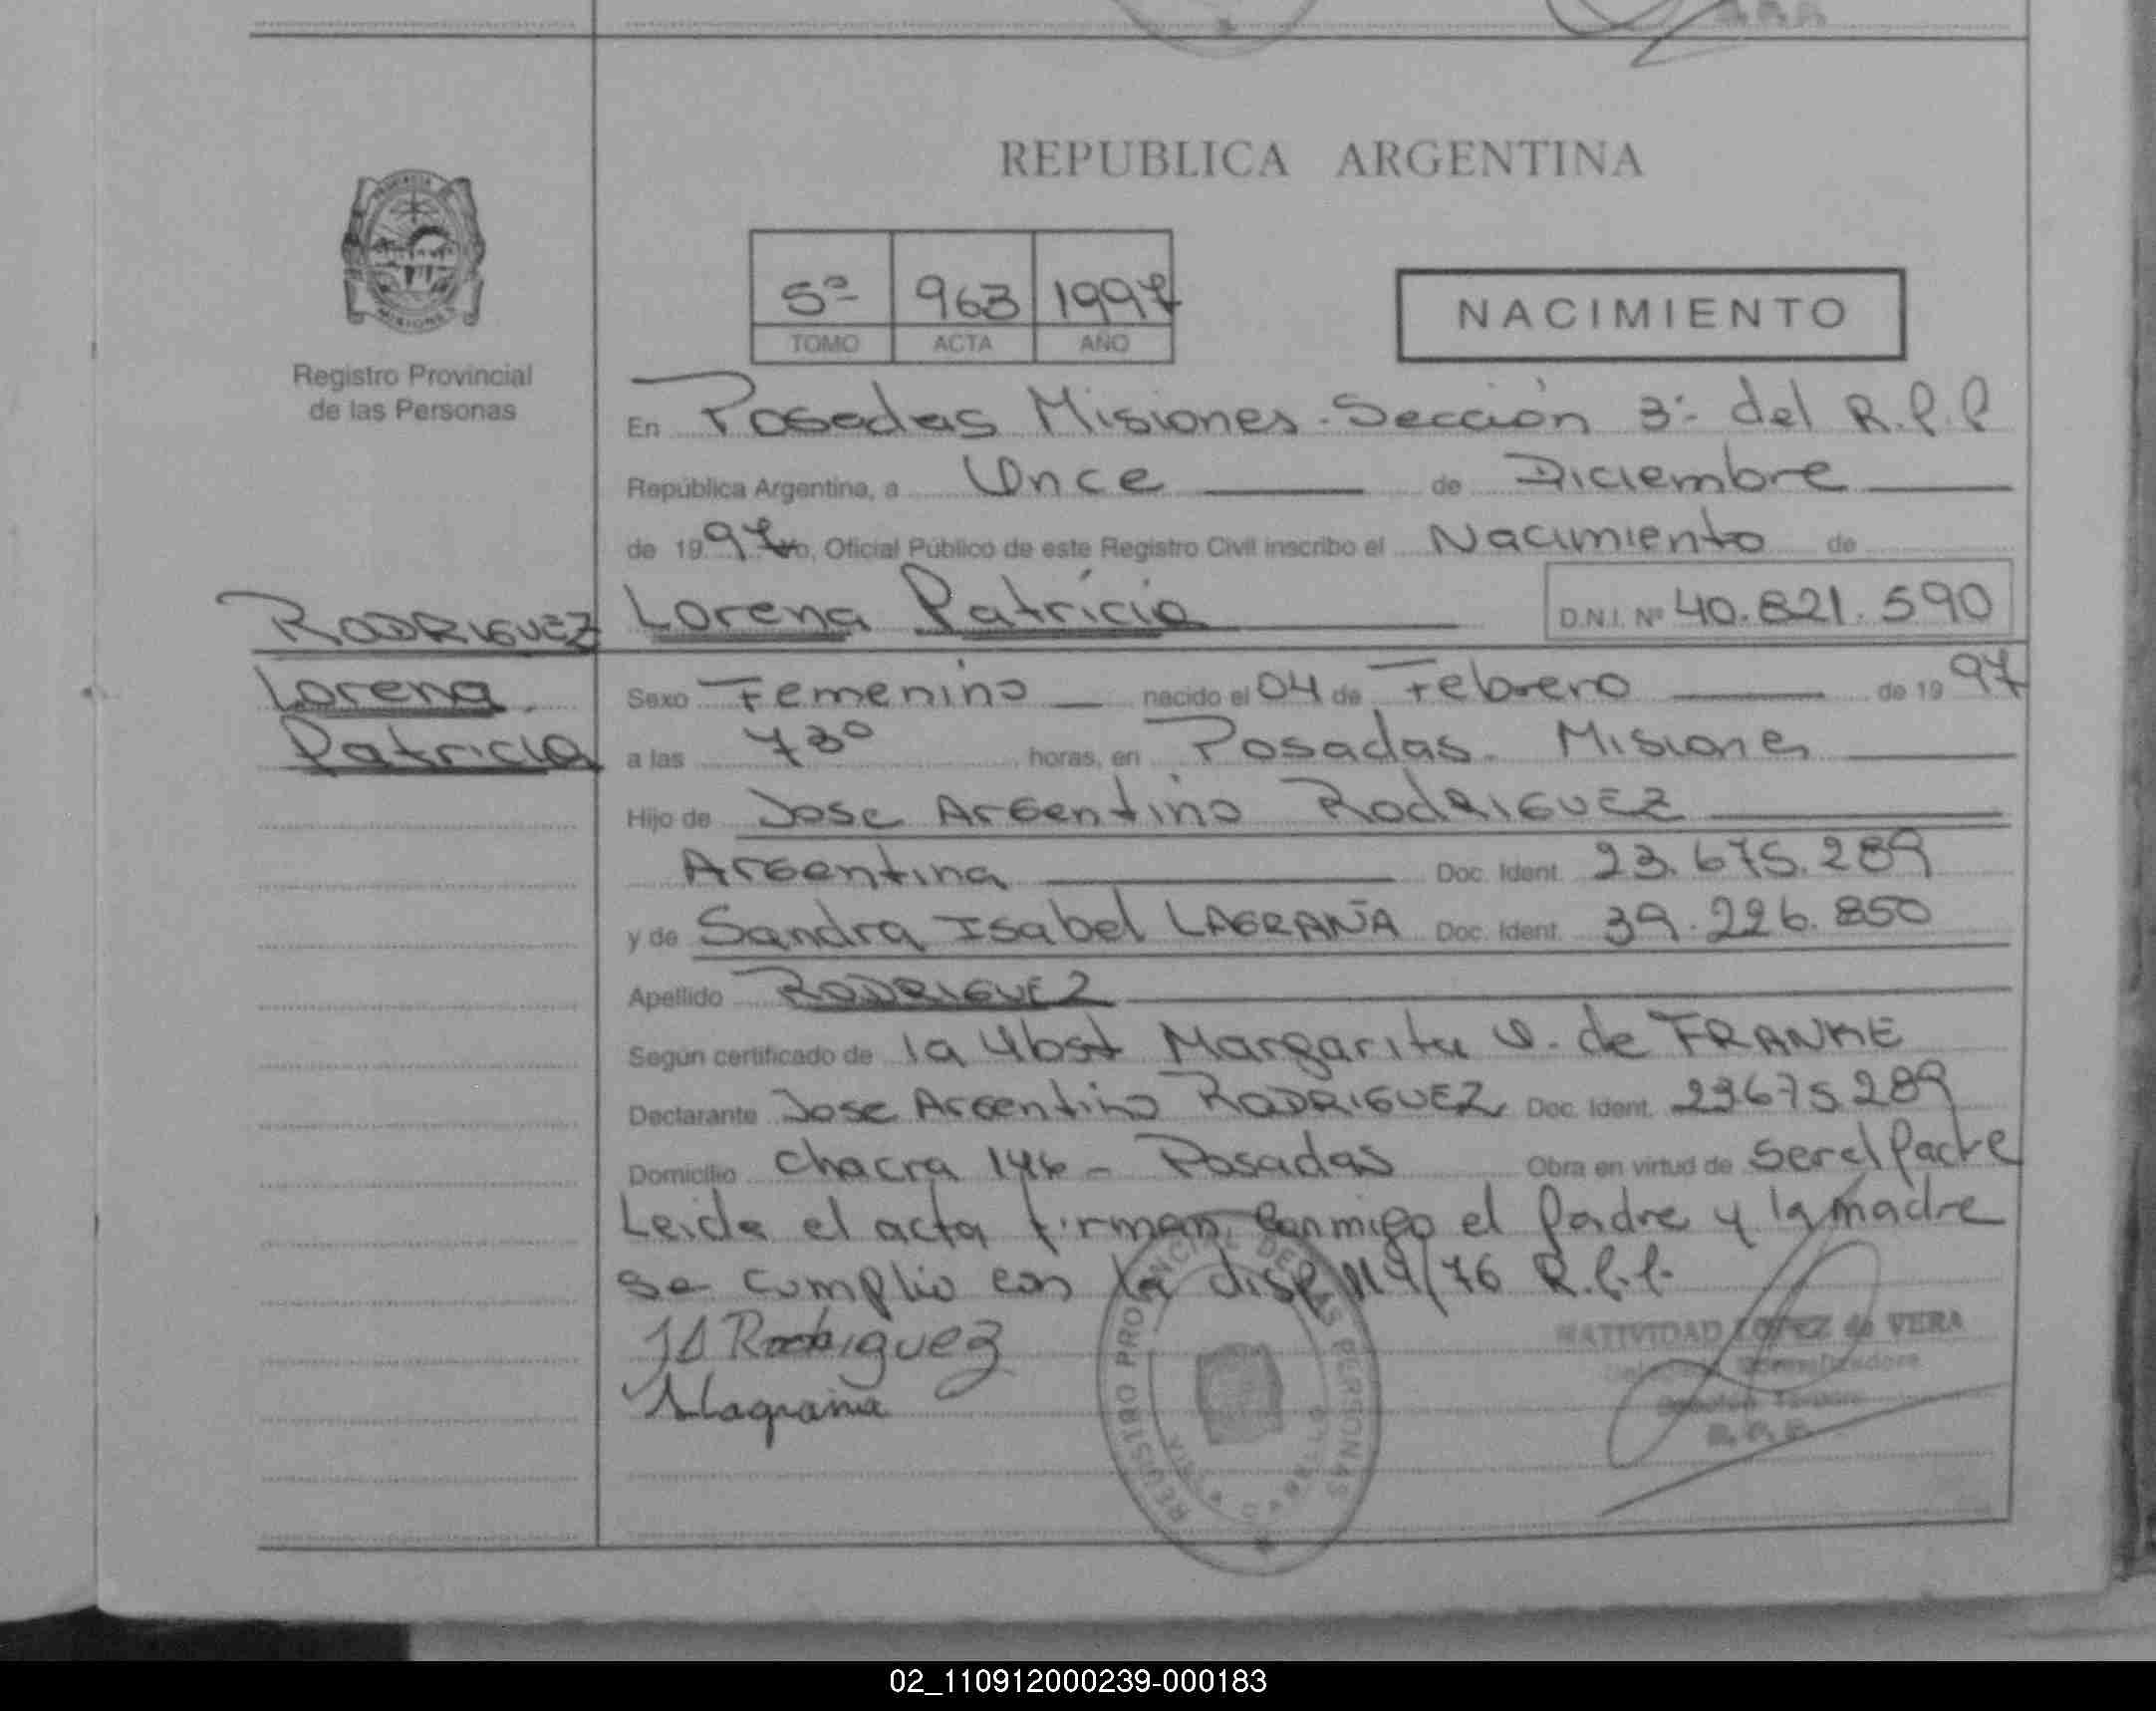 REPUBLICA ARGENTINA
PROVINCIA
MISIONES
Registro Provincial
de las Personas
5º 963 1997
TOMO ACTA AÑO
NACIMIENTO
En Posadas Misiones. Sección 3º del R.P.P
República Argentina, a Once de Diciembre
de 1997 yo, Oficial Público de este Registro Civil inscribo el Nacimiento de
RODRIGUEZ
Lorena
Patricia
Lorena Patricia D.N.I. Nº 40.821.590
Sexo Femenino nacido el 04 de Febrero de 1997
a las 7 30 horas, en Posadas. Misiones
Hijo de Jose Argentino RodRIGUEZ
Argentina Doc. Ident. 23.675.289
y de Sandra Isabel LAGRAÑA Doc. Ident. 39.226.850
Apellido RODRIGUEZ
Según certificado de la Obst Margarita de FRANKE
Declarante Jose Argentino RODRIGUEZ Doc. Ident. 23675289
Domicilio chacra 146 - Posadas Obra en virtud de ser el Padre
Leida el acta firman conmigo el Padre y la madre
se cumplio con la disp 119/76 R.P.P.
JA Rodriguez
Lagraña
REGISTRO PROVINCIAL DE LAS PERSONAS
NATIVIDAD LOPEZ de VERA
R.P.P.
02_110912000239-000183